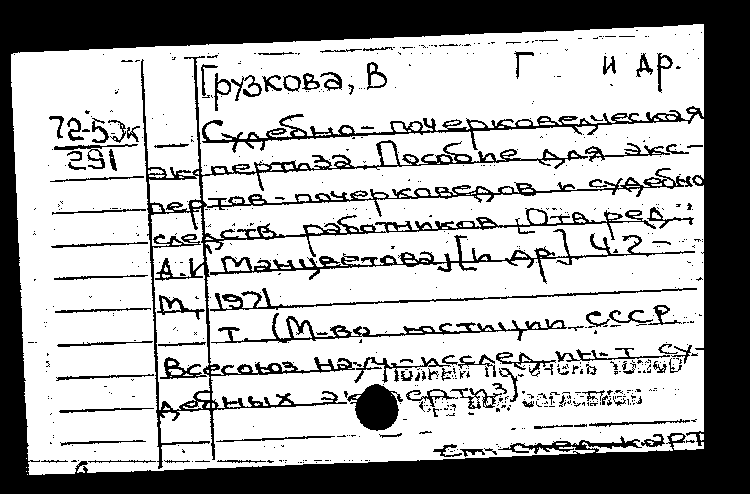 Грузкова, В Г и др.
72-5Эк
291
Судебно-почерковедческая
экспертиза. Пособие для экс-
пертов-почерковедов и судебно
следств. работников. [Отв. ред.:
А.И Манцветова, [и др.] Ч.2-
М, 1971.
т. (М-во юстиции СССР
Всесоюз науч-исслед. ин-т су-
дебных экспертиз)
Полный перечень томов
под заглавием
См. след. карт